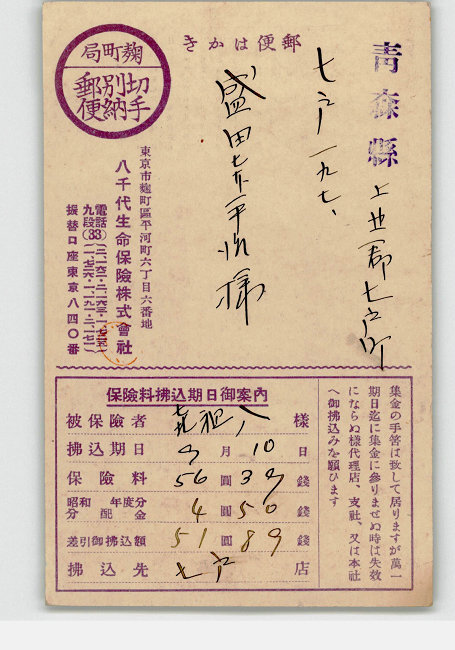 郵便はかき
麴町局
切手
別納
郵便
青森縣 上北郡七戸町
七戸一九七、
盛田七平治様
東京市麴町區平河町六丁目六番地
八千代生命保險株式會社
電話
九段(33)
振替口座東京八四〇番
保險料拂込期日御案內
被保險者 様
拂込期日 9月10日
保險料 56圓39錢
昭和 年度分
分配金 4圓50錢
差引御拂込額 51圓89錢
拂込先 七戸店
集金の手筈は致して居りますが萬一
期日迄に集金に參りませぬ時は失效
にならぬ樣代理店、支社、又は本社
へ御拂込みを願ひます